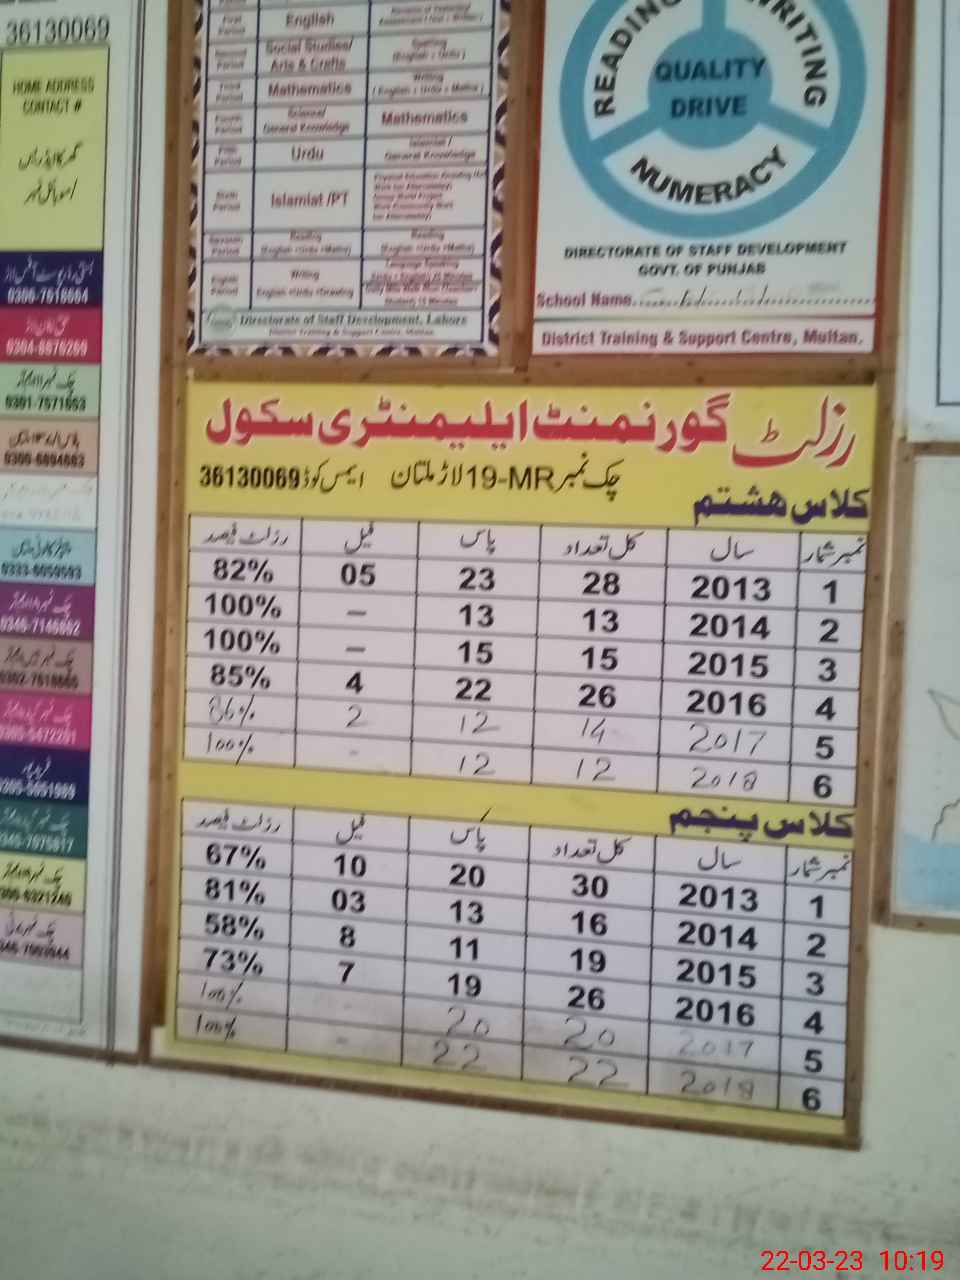 36130069
HOME ADDRESS
CONTACT #
گھر کا ایڈریس
/موبائل نمبر
0306-7618664
0304-6876269
0301-7571653
0300-6694663
0333-6059593
0346-7146602
0302-7618666
0305-5051989
0345-7075817
First Period English
Second Period Social Studies/ Arts & Crafts Spelling (English + Urdu)
Third Period Mathematics Writing (English + Urdu + Maths)
Fourth Period Science/ General Knowledge Mathematics
Fifth Period Urdu Islamiat / General Knowledge
Sixth Period Islamiat /PT
Seventh Period Reading (English +Urdu +Maths) Reading (English +Urdu +Maths)
Eighth Period Writing English +Urdu +Drawing
Directorate of Staff Development, Lahore
District Training & Support Centre, Multan.
READING WRITING
QUALITY
DRIVE
NUMERACY
DIRECTORATE OF STAFF DEVELOPMENT
GOVT. OF PUNJAB
School Name
District Training & Support Centre, Multan.
رزلٹ گورنمنٹ ایلیمنٹری سکول
چک نمبر 19-MR لاڑ ملتان ایمس کوڈ 36130069
کلاس ہشتم
نمبر شمار سال کل تعداد پاس فیل رزلٹ فیصد
1 2013 28 23 05 82%
2 2014 13 13 – 100%
3 2015 15 15 – 100%
4 2016 26 22 4 85%
5 2017 14 12 2 86%
6 2018 12 12 - 100%
کلاس پنجم
نمبر شمار سال کل تعداد پاس فیل رزلٹ فیصد
1 2013 30 20 10 67%
2 2014 16 13 03 81%
3 2015 19 11 8 58%
4 2016 26 19 7 73%
5 2017 20 20 100%
6 2018 22 22 - 100%
22-03-23 10:19